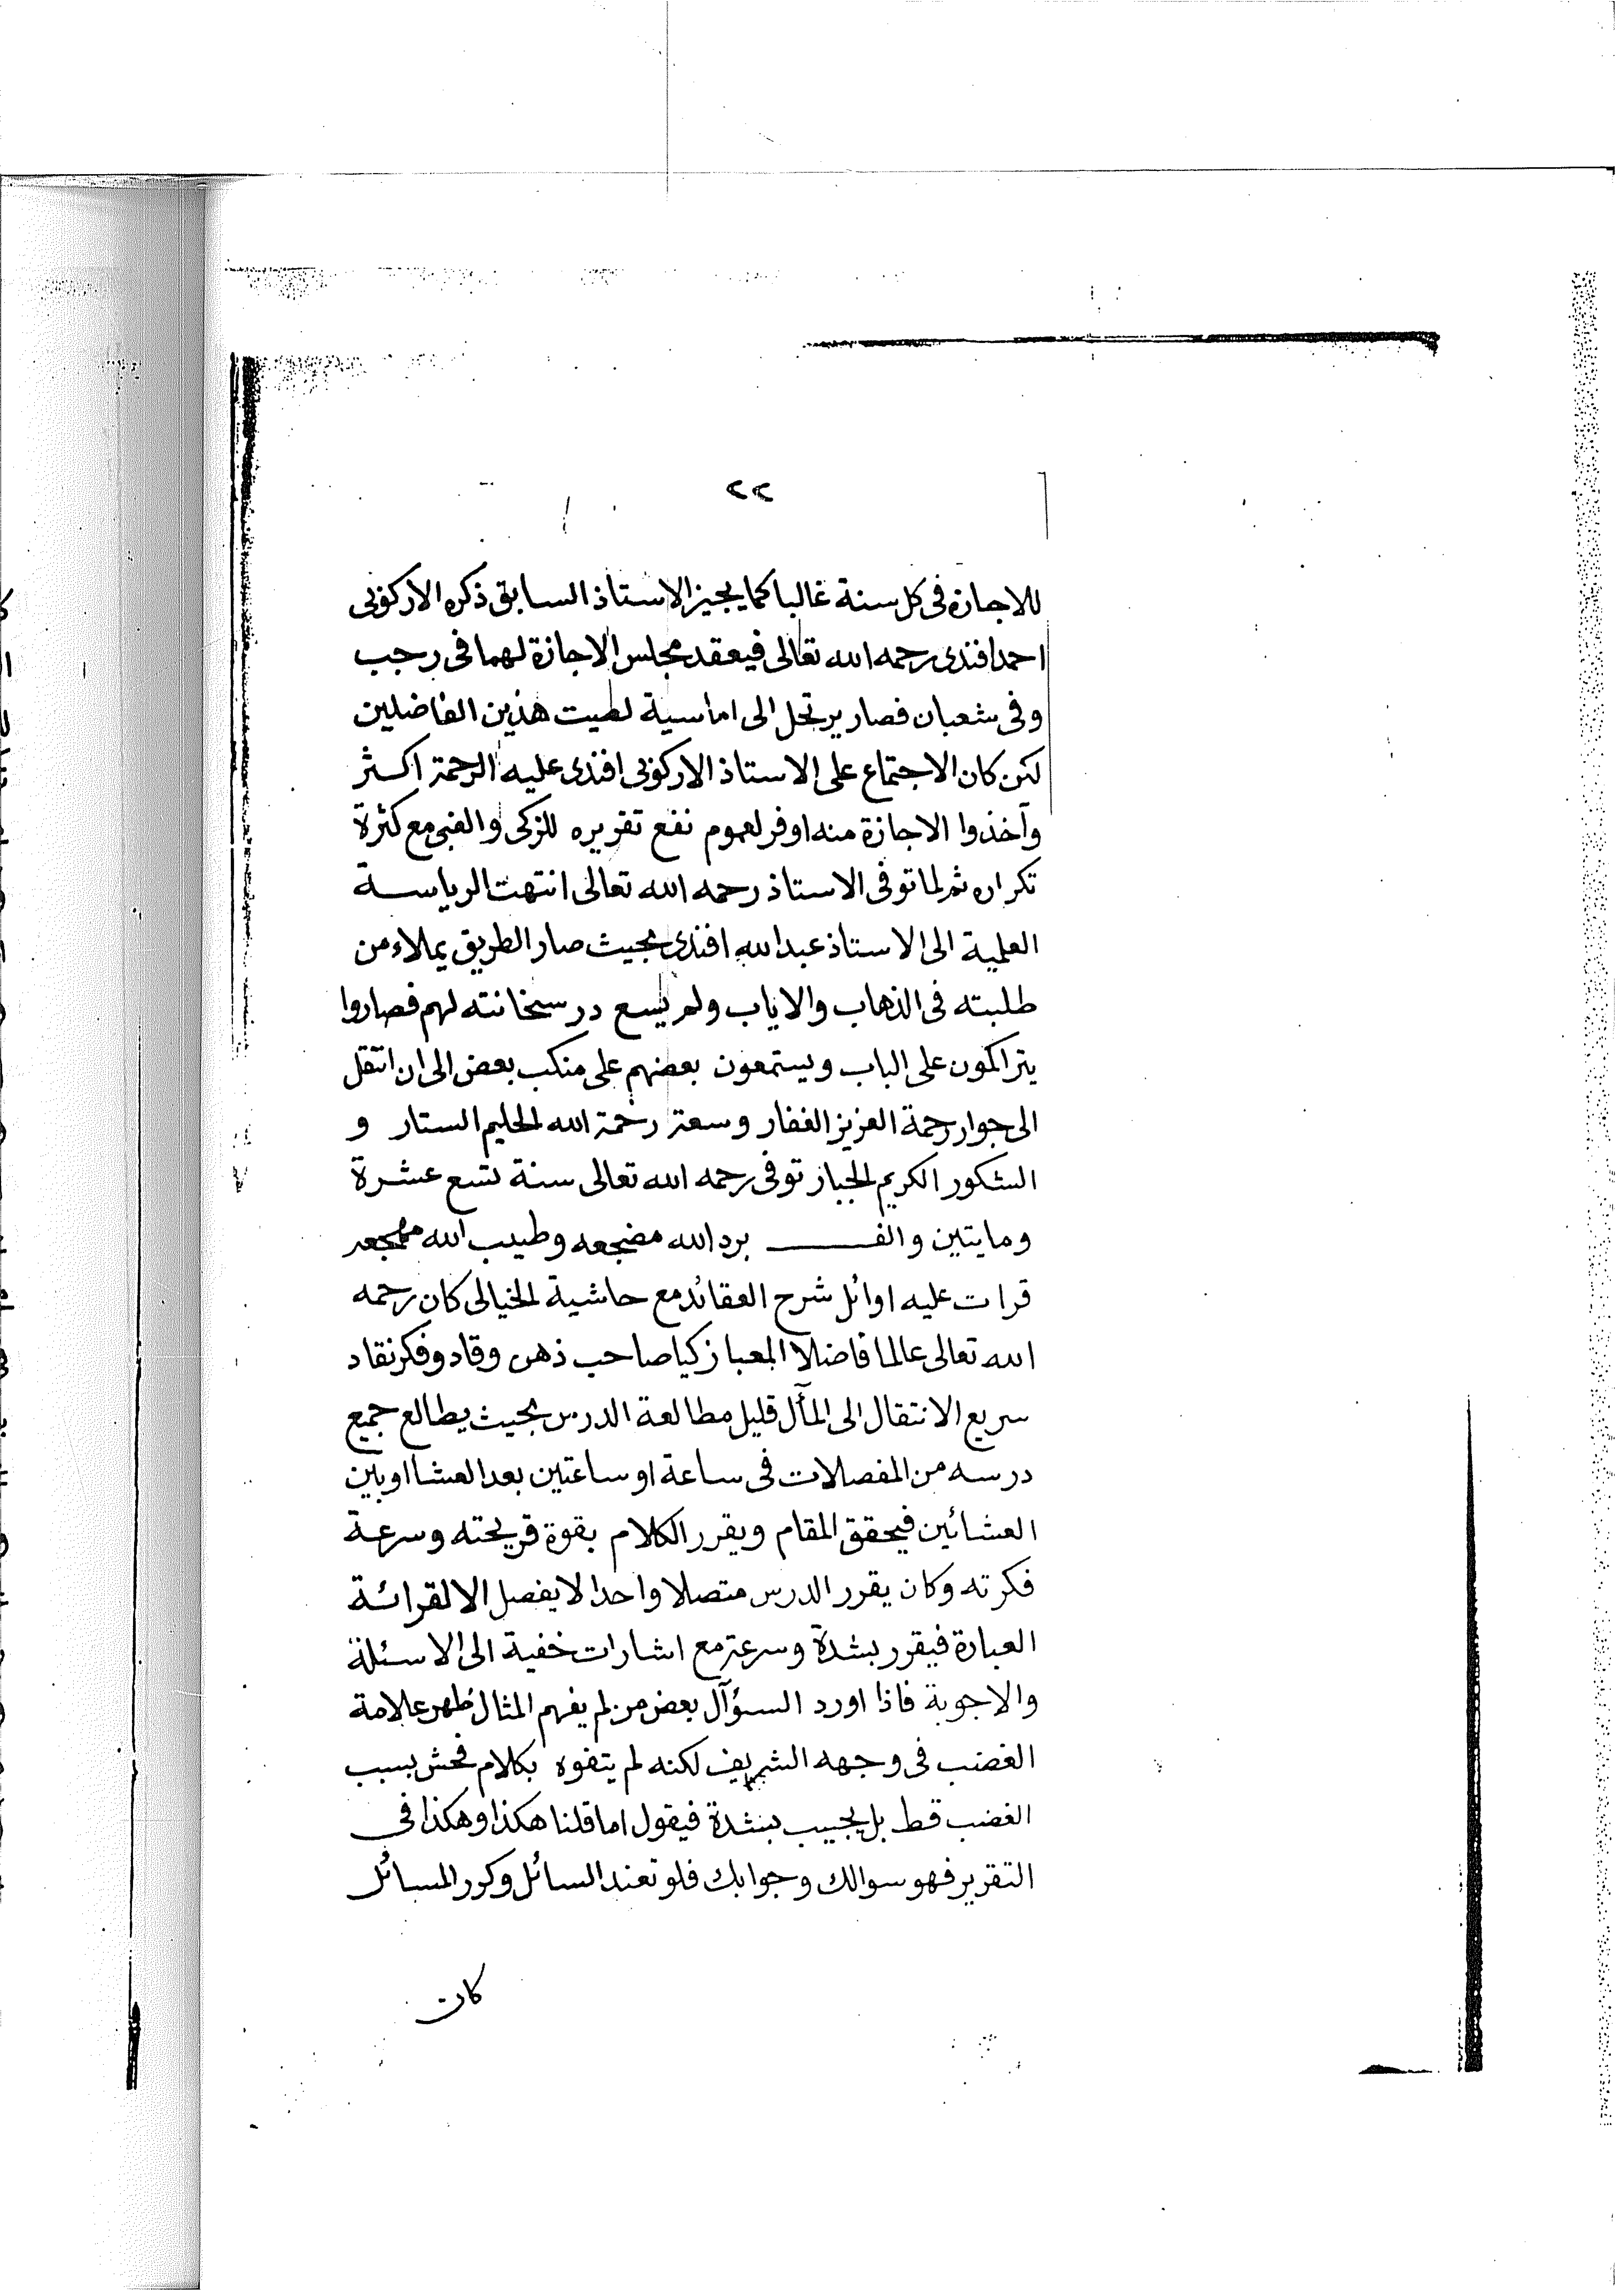 ٢٢
للاجازة فى كل سنة غالبا كما يجيز الاستاذ السابق ذكره الاركوبى
احمد افندى رحمه الله تعالى فيعقد مجلس الاجازة لهما فى رجب
وفى شعبان فصار يرتحل الى اماسية لصيت هذين الفاضلين
لكن كان الاجتماع على الاستاذ الاركوبى افندى عليه الرحمة اكثر
وآخذوا الاجازة منه اوفر لعموم نفع تقريره للزكى والغبى مع كثرة
تكراره ثم لما توفى الاستاذ رحمه الله تعالى انتهت الرياسة
العلمية الى الاستاذ عبد الله افندى بحيث صار الطريق يملاء من
طلبته فى الذهاب والاياب ولم يسع درسخانته لهم فصاروا
يتراكمون على الباب ويستمعون بعضهم على منكب بعض الى ان انتقل
الى جوار رحمة العزيز الغفار وسعة رحمة الله الحليم الستار و
الشكور الكريم الجبار توفى رحمه الله تعالى سنة تسع عشرة
ومايتين والف برد الله مضجعه وطيب الله
قرات عليه اوائل شرح العقائد مع حاشية الخيالى كان رحمه
الله تعالى عالما فاضلا المعيا زكيا صاحب ذهن وقاد وفكر نقاد
سريع الانتقال الى المآل قليل مطالعة الدرس بحيث يطالع جميع
درسه من المفصلات فى ساعة او ساعتين بعد العشا او بين
العشائين فيحقق المقام ويقرر الكلام بقوة قريحته وسرعة
فكرته وكان يقرر الدرس متصلا واحدا لا يفصل الا لقرائة
العبارة فيقرر بشدة وسرعة مع اشارات خفية الى الاسئلة
والاجوبة فاذا اورد السؤآل بعض من لم يفهم المثال ظهر علامة
الغضب فى وجهه الشريف لكنه لم يتفوه بكلام فحش بسبب
الغضب قط بل يجيب بشدة فيقول اما قلنا هكذا وهكذا فى
التقرير فهو سوالك وجوابك فلو تعند السائل وكرر المسائل
كان